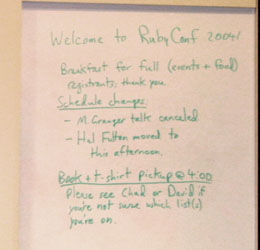 Welcome to RubyConf 2004!
Breakfast for full (events + food)
registrants, thank you.
Schedule changes:
- M. Granger talk canceled
- Hal Fulton moved to
this afternoon.
Book + t-shirt pickup @ 4:00
Please see Chad or David if
you're not sure which list(s)
you're on.